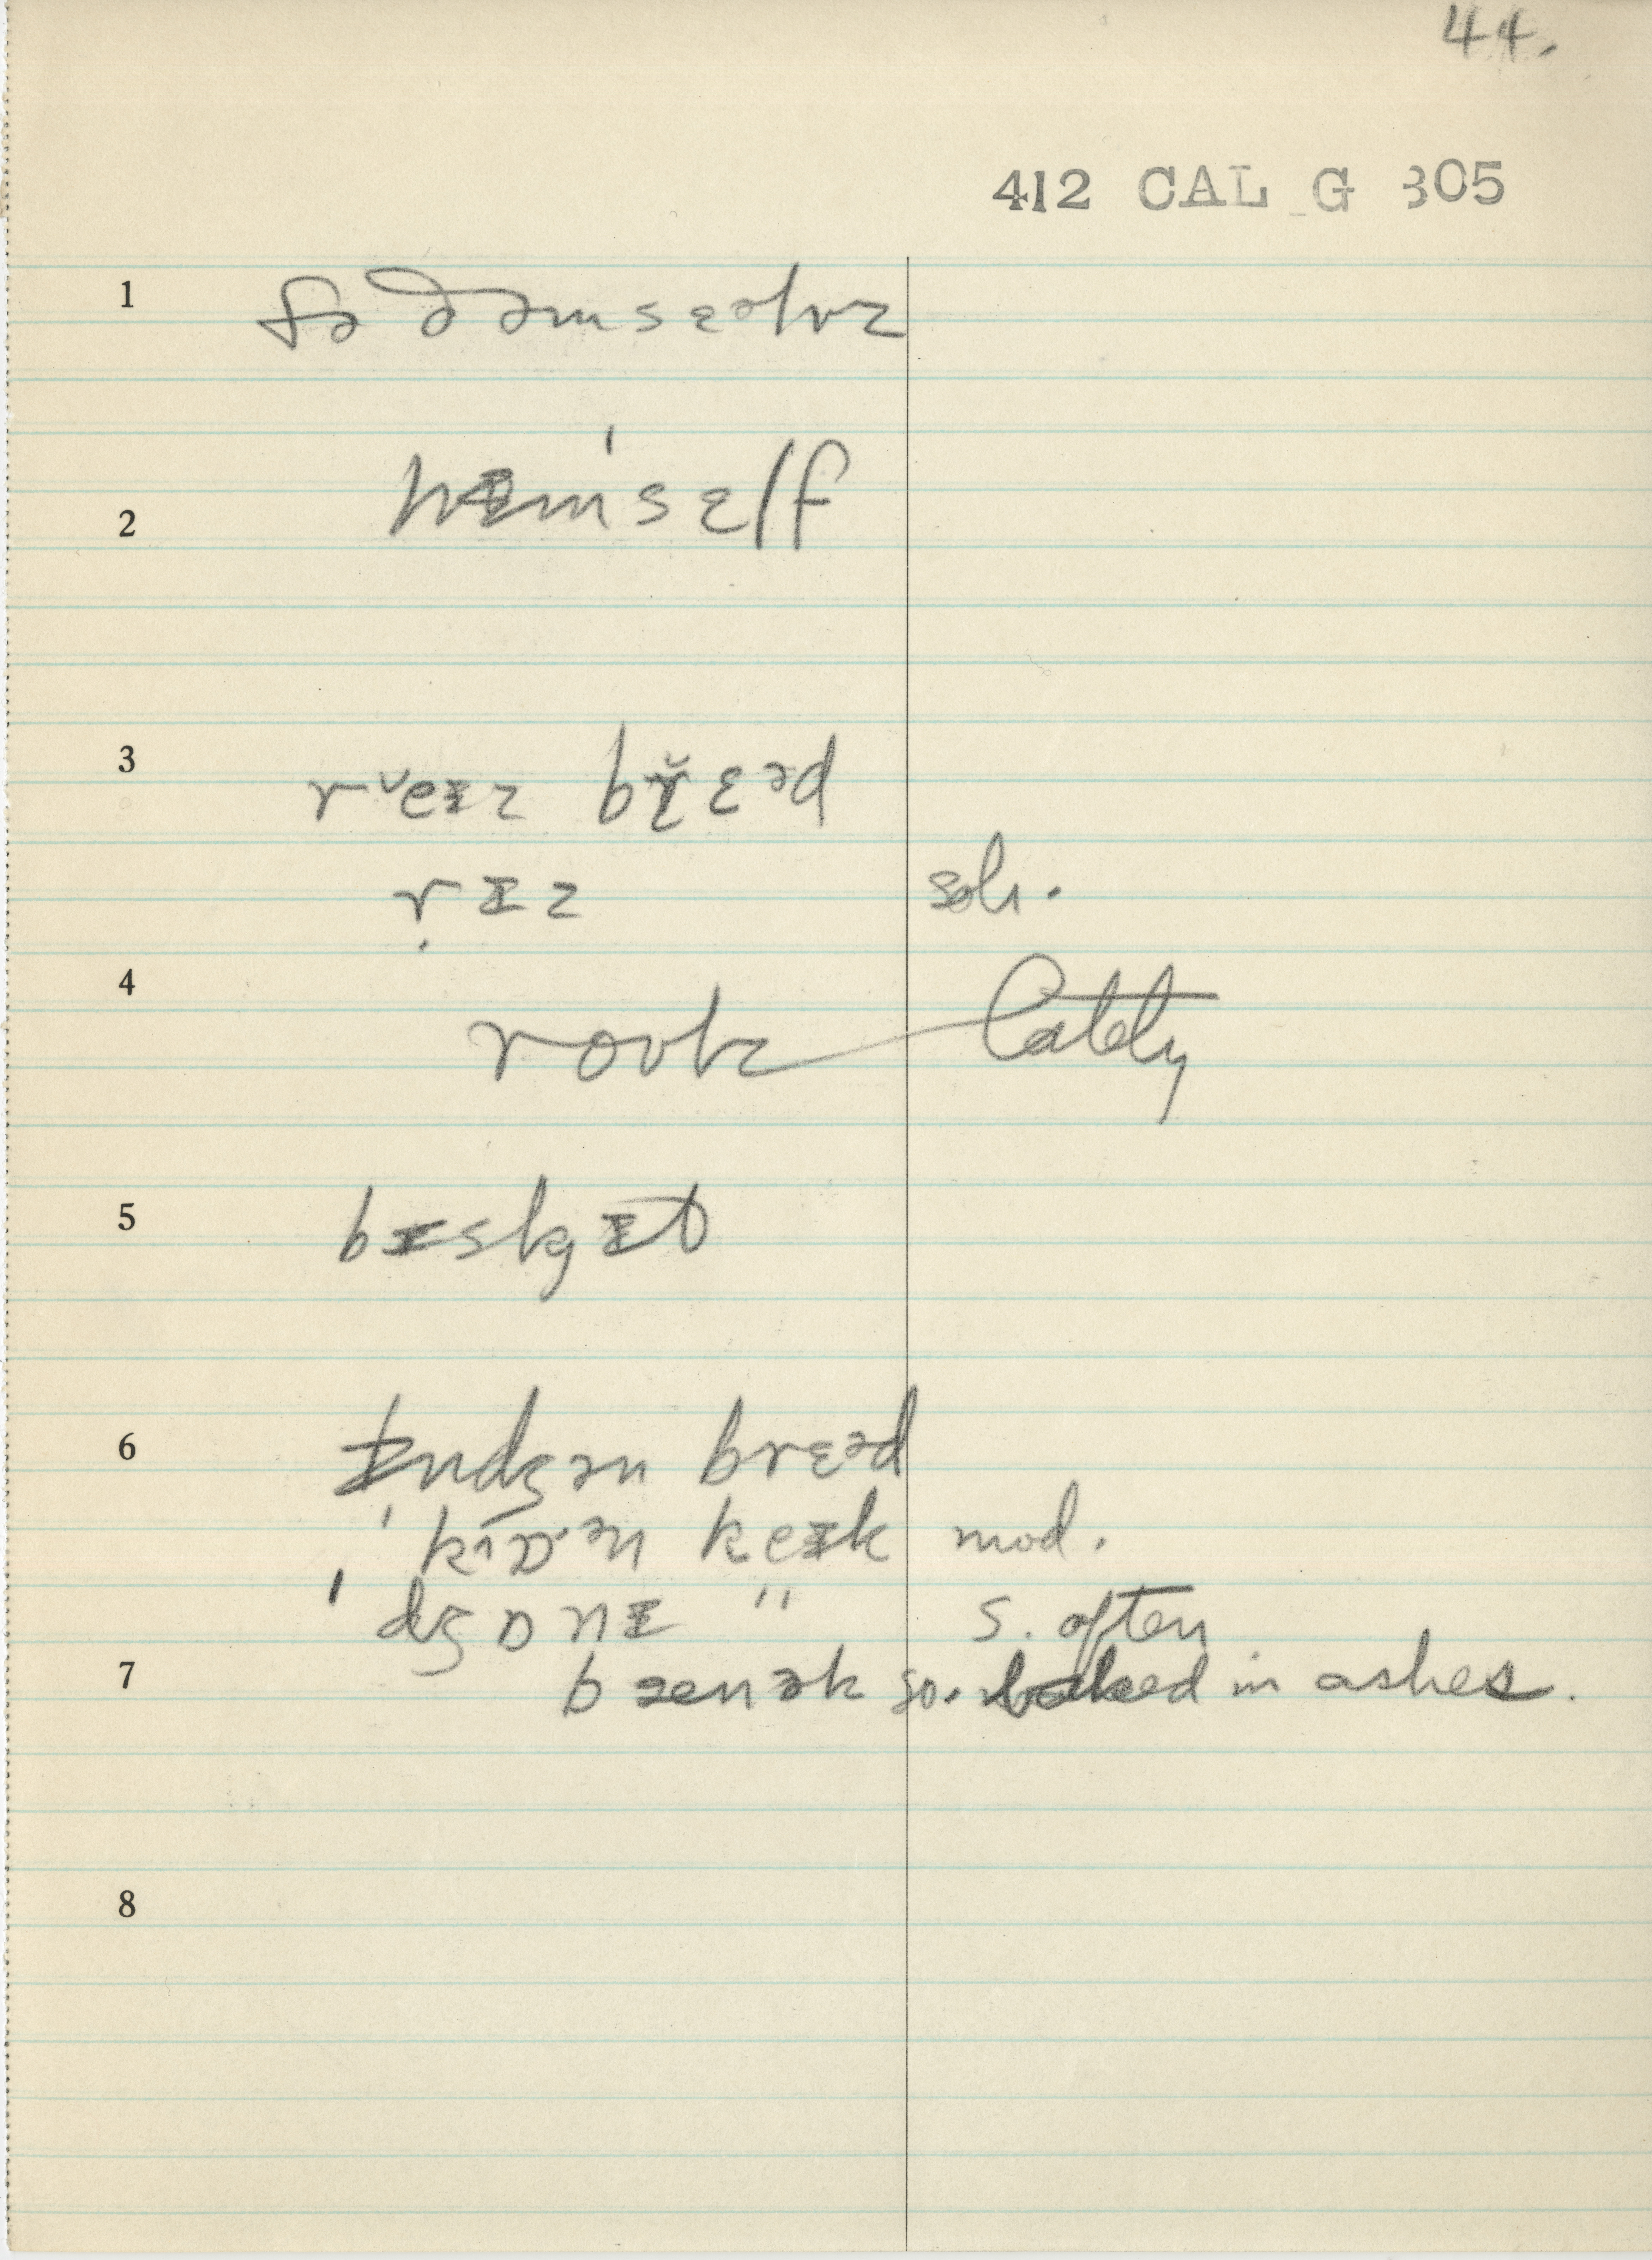 44.
412 CAL G 305
1 fə ðəmsɛəlvz
2 hɪm'sɛlf
3 r˘eɪz br̆ɛəd
rɪz sok.
4 roʊlz lately
5 bɪskɪt
6 ɪndʒən brɛəd
' kɪɒən keɪk mod.
' dʒɒnɪ " s. often
7 bænək so. baked in ashes.
8